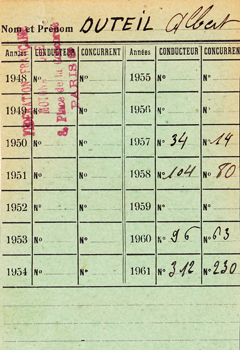 Nom et Prénom DUTEIL Albert
Années CONDUCTEUR CONCURRENT Années CONDUCTEUR CONCURRENT
1948 N° N° 1955 N° N°
1949 N° N° 1956 N° N°
1950 N° N° 1957 N° 34 N° 14
1951 N° N° 1958 N° 104 N° 80
1952 N° N° 1959 N° N°
1953 N° N° 1960 N° 96 N° 63
1954 N° N° 1961 N° 312 N° 230
FÉDÉRATION FRANÇAISE
8, Place de la Concorde
PARIS